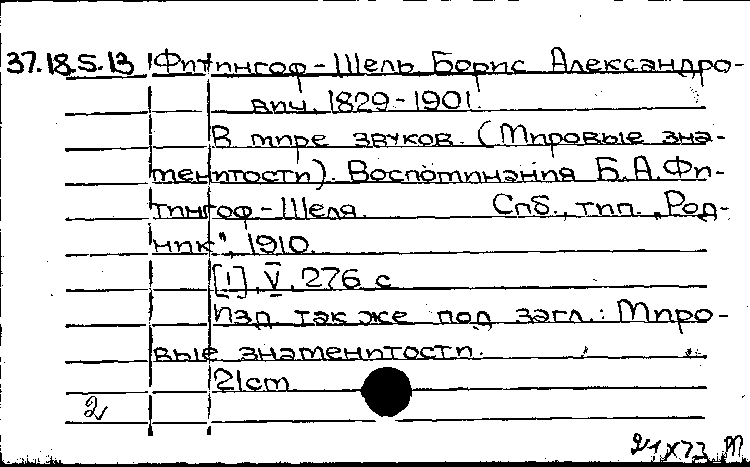 37.18.5.13 Фитингоф-Шель Борис Александро-
вич. 1829-1901.
В мире звуков. (Мировые зна-
менитости). Воспоминания Б.А.Фи-
тингоф-Шеля. Спб., тип. „Род-
ник", 1910.
[1], V, 276 с
Изд. также под загл.: Миро-
вые знаменитости.
21cm
2